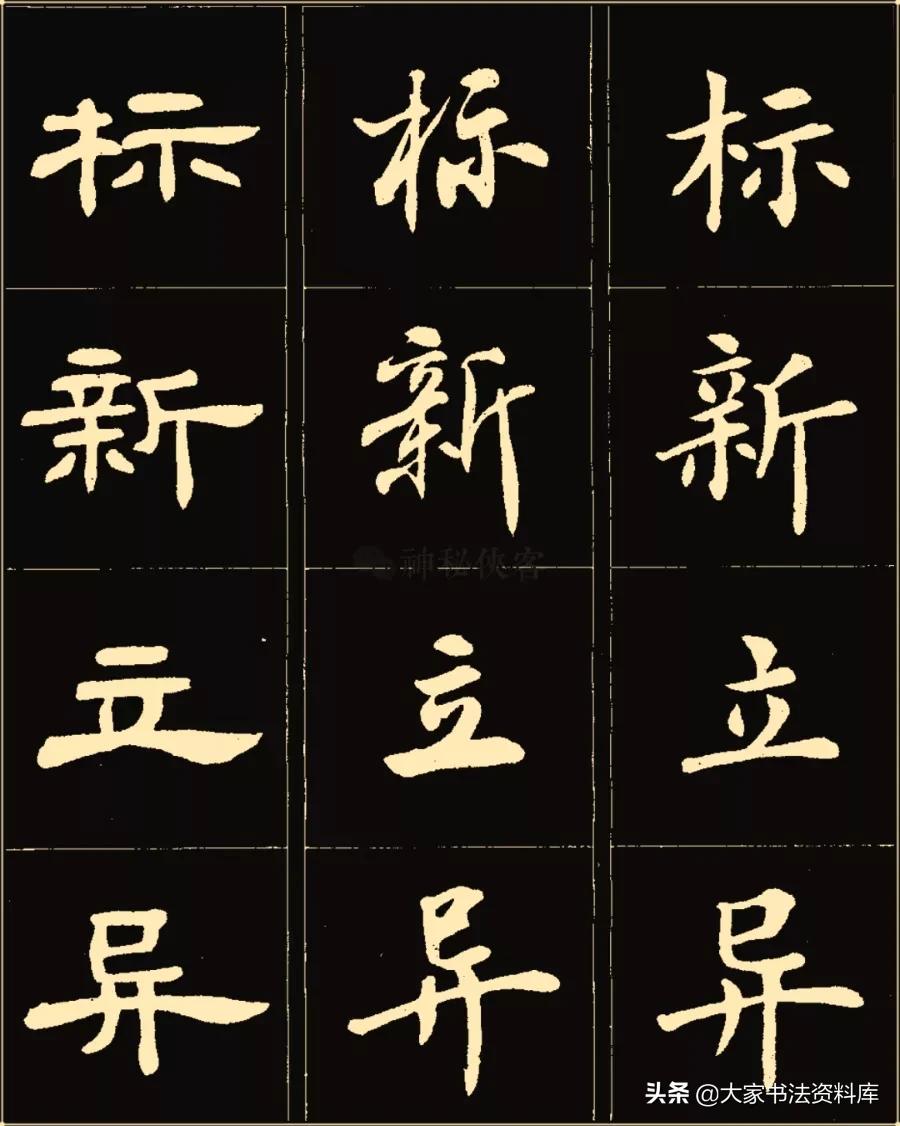 标 标 标
新 新 新
神秘侠客
立 立 立
异 异 异
头条 @大家书法资料库